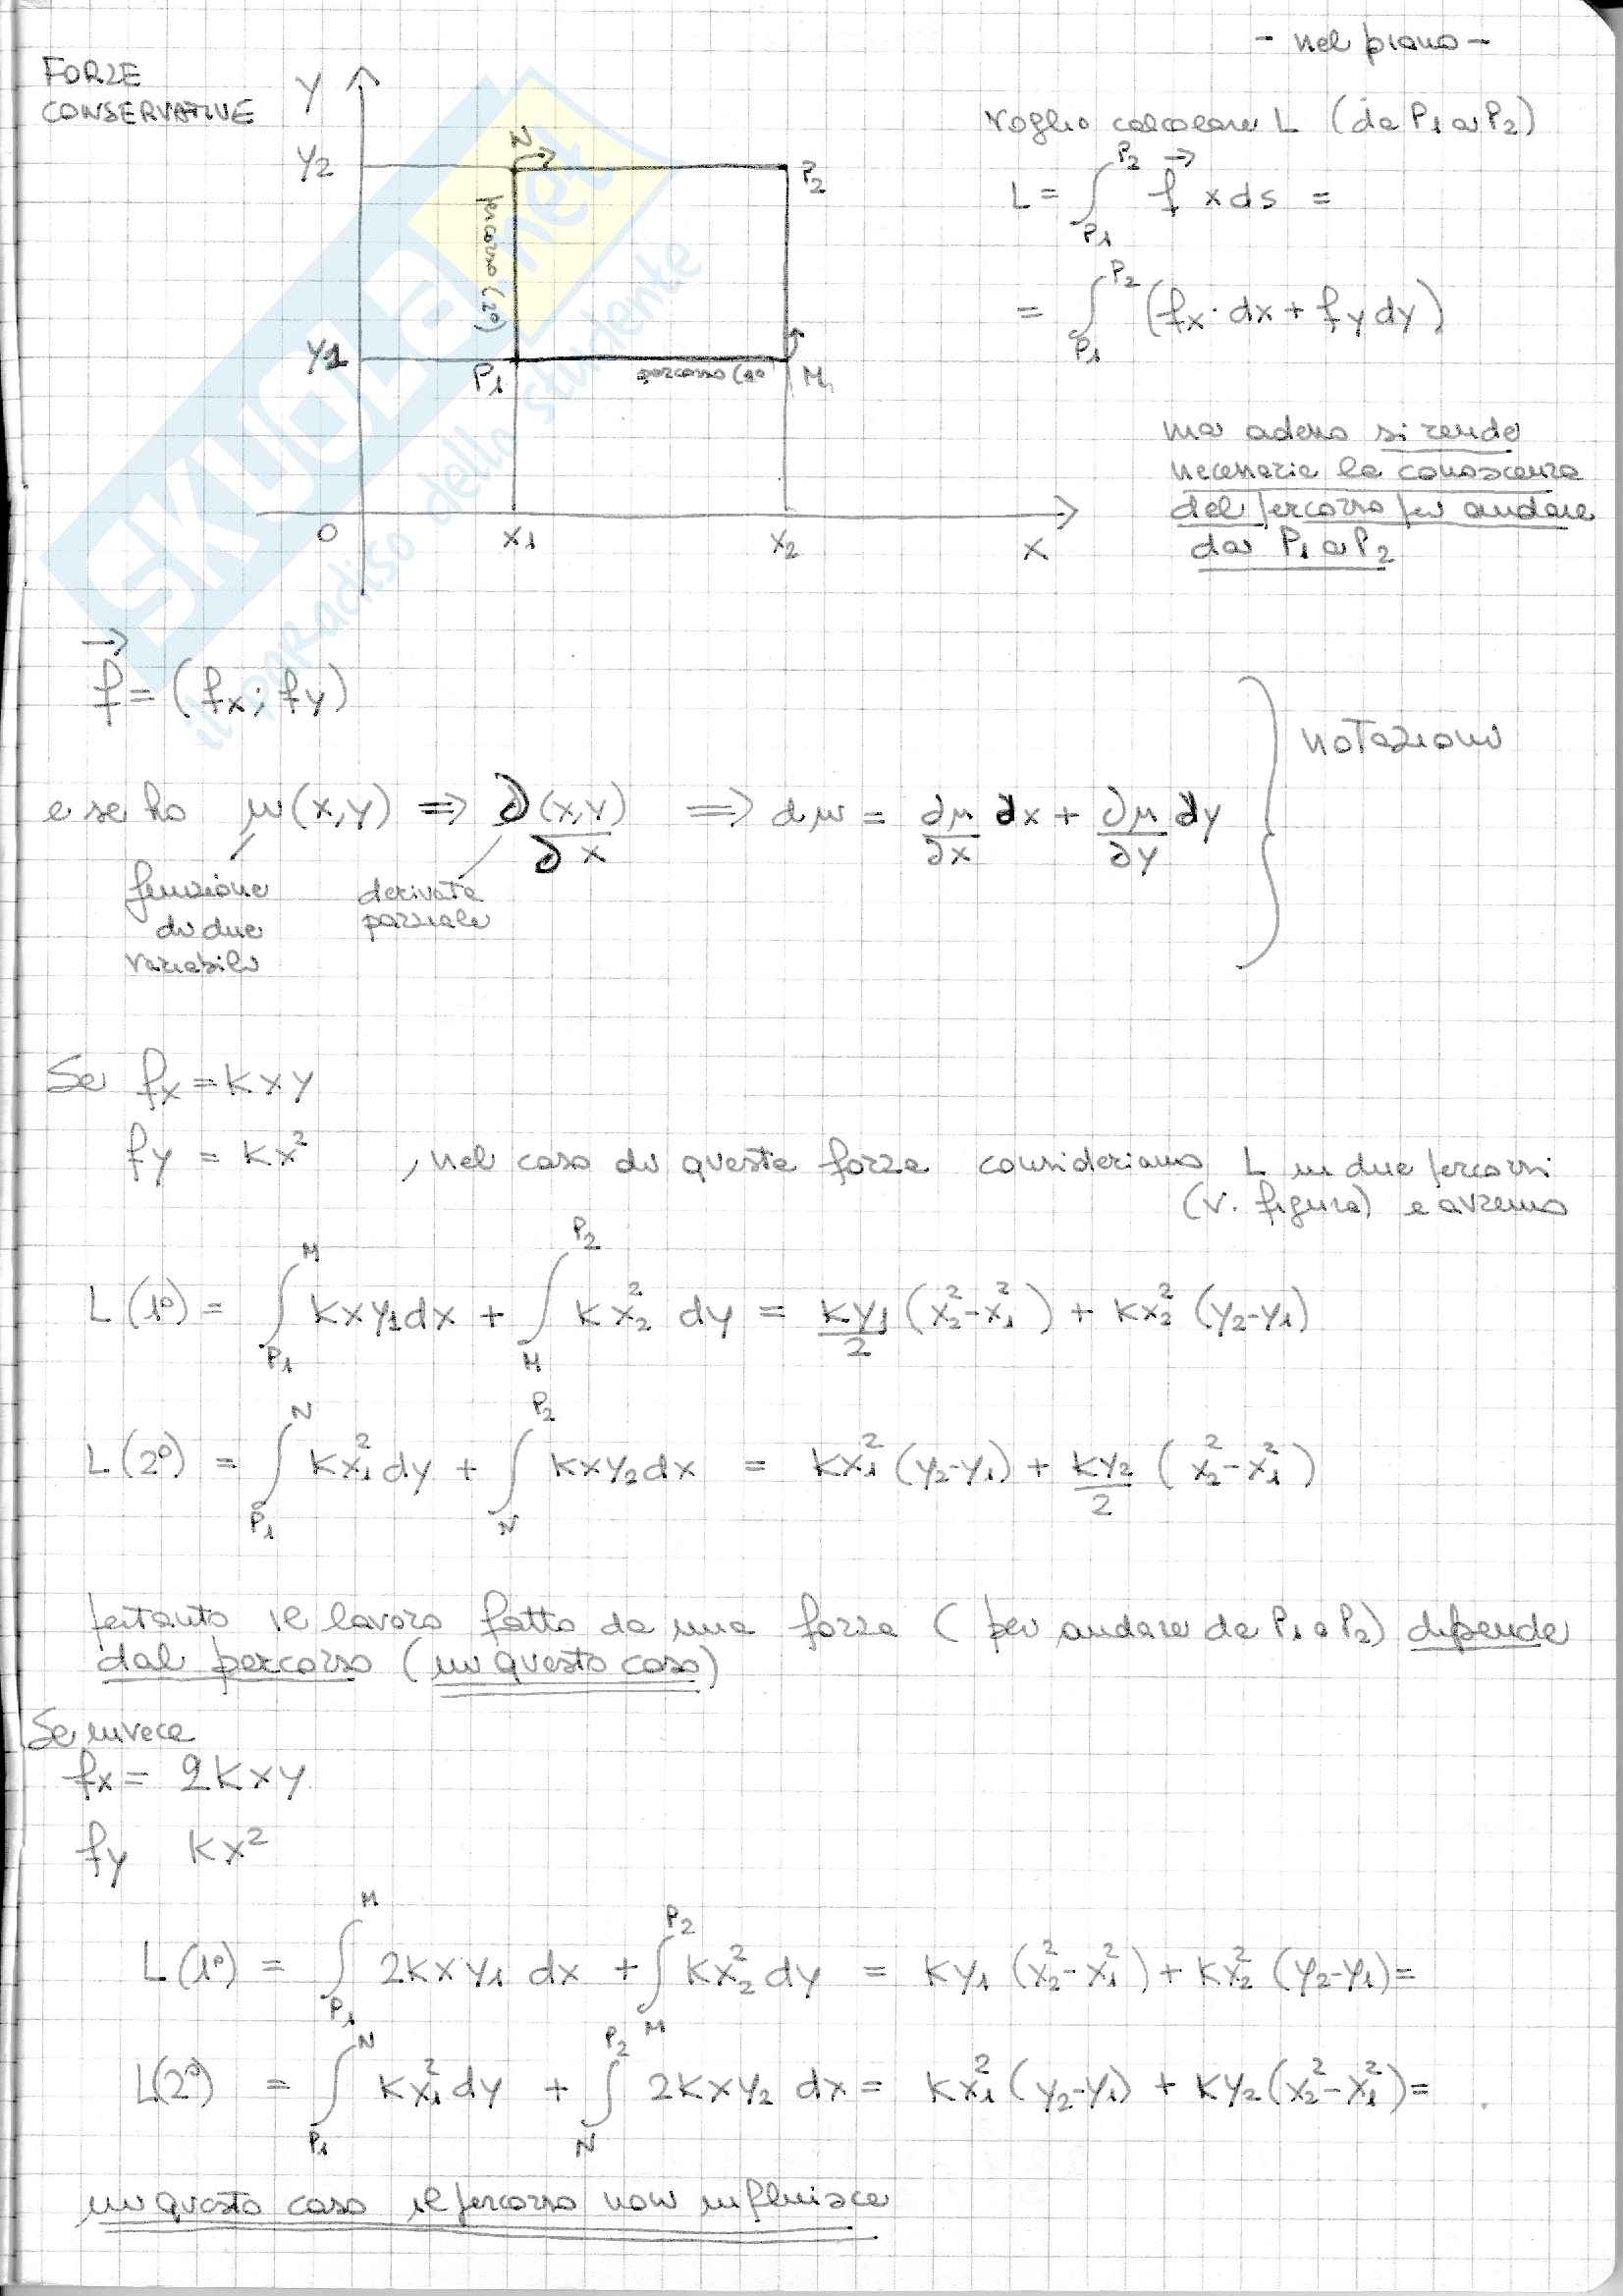 - nel piano -
FORZE
CONSERVATIVE
Y
Y2
N
P2
percorso (2°)
Y1
P1
percorso (1°)
M
O
X1
X2
X
Voglio calcolare L (da P1 a P2)
L = ∫_{P1}^{P2} f⃗ x ds =
= ∫_{P1}^{P2} (fx · dx + fy dy)
ma adesso si rende
necessaria la conoscenza
del percorso per andare
da P1 a P2
SKUOLA.net
il paradiso dello studente
f⃗ = (fx; fy)
notazioni
e se ho μ(x,y) => ∂(x,y)/∂x => dμ = ∂μ/∂x ∂x + ∂μ/∂y ∂y
funzione
di due
variabili
derivata
parziale
Se fx = kxy
fy = kx² , nel caso di questa forza consideriamo L in due percorsi
(v. figura) e avremo
L(1°) = ∫_{P1}^{M} kxy1 dx + ∫_{M}^{P2} kx2² dy = ky1/2 (x2² - x1²) + kx2² (y2-y1)
L(2°) = ∫_{P1}^{N} kx1² dy + ∫_{N}^{P2} kxy2 dx = kx1² (y2-y1) + ky2/2 (x2² - x1²)
pertanto il lavoro fatto da una forza (per andare da P1 a P2) dipende
dal percorso (in questo caso)
Se invece
fx = 2kxy
fy kx²
L(1°) = ∫_{P1}^{M} 2kxy1 dx + ∫_{M}^{P2} kx2² dy = ky1 (x2² - x1²) + kx2² (y2-y1) =
L(2°) = ∫_{P1}^{N} kx1² dy + ∫_{N}^{P2} 2kxy2 dx = kx1² (y2-y1) + ky2 (x2² - x1²) =
in questo caso il percorso non influisce